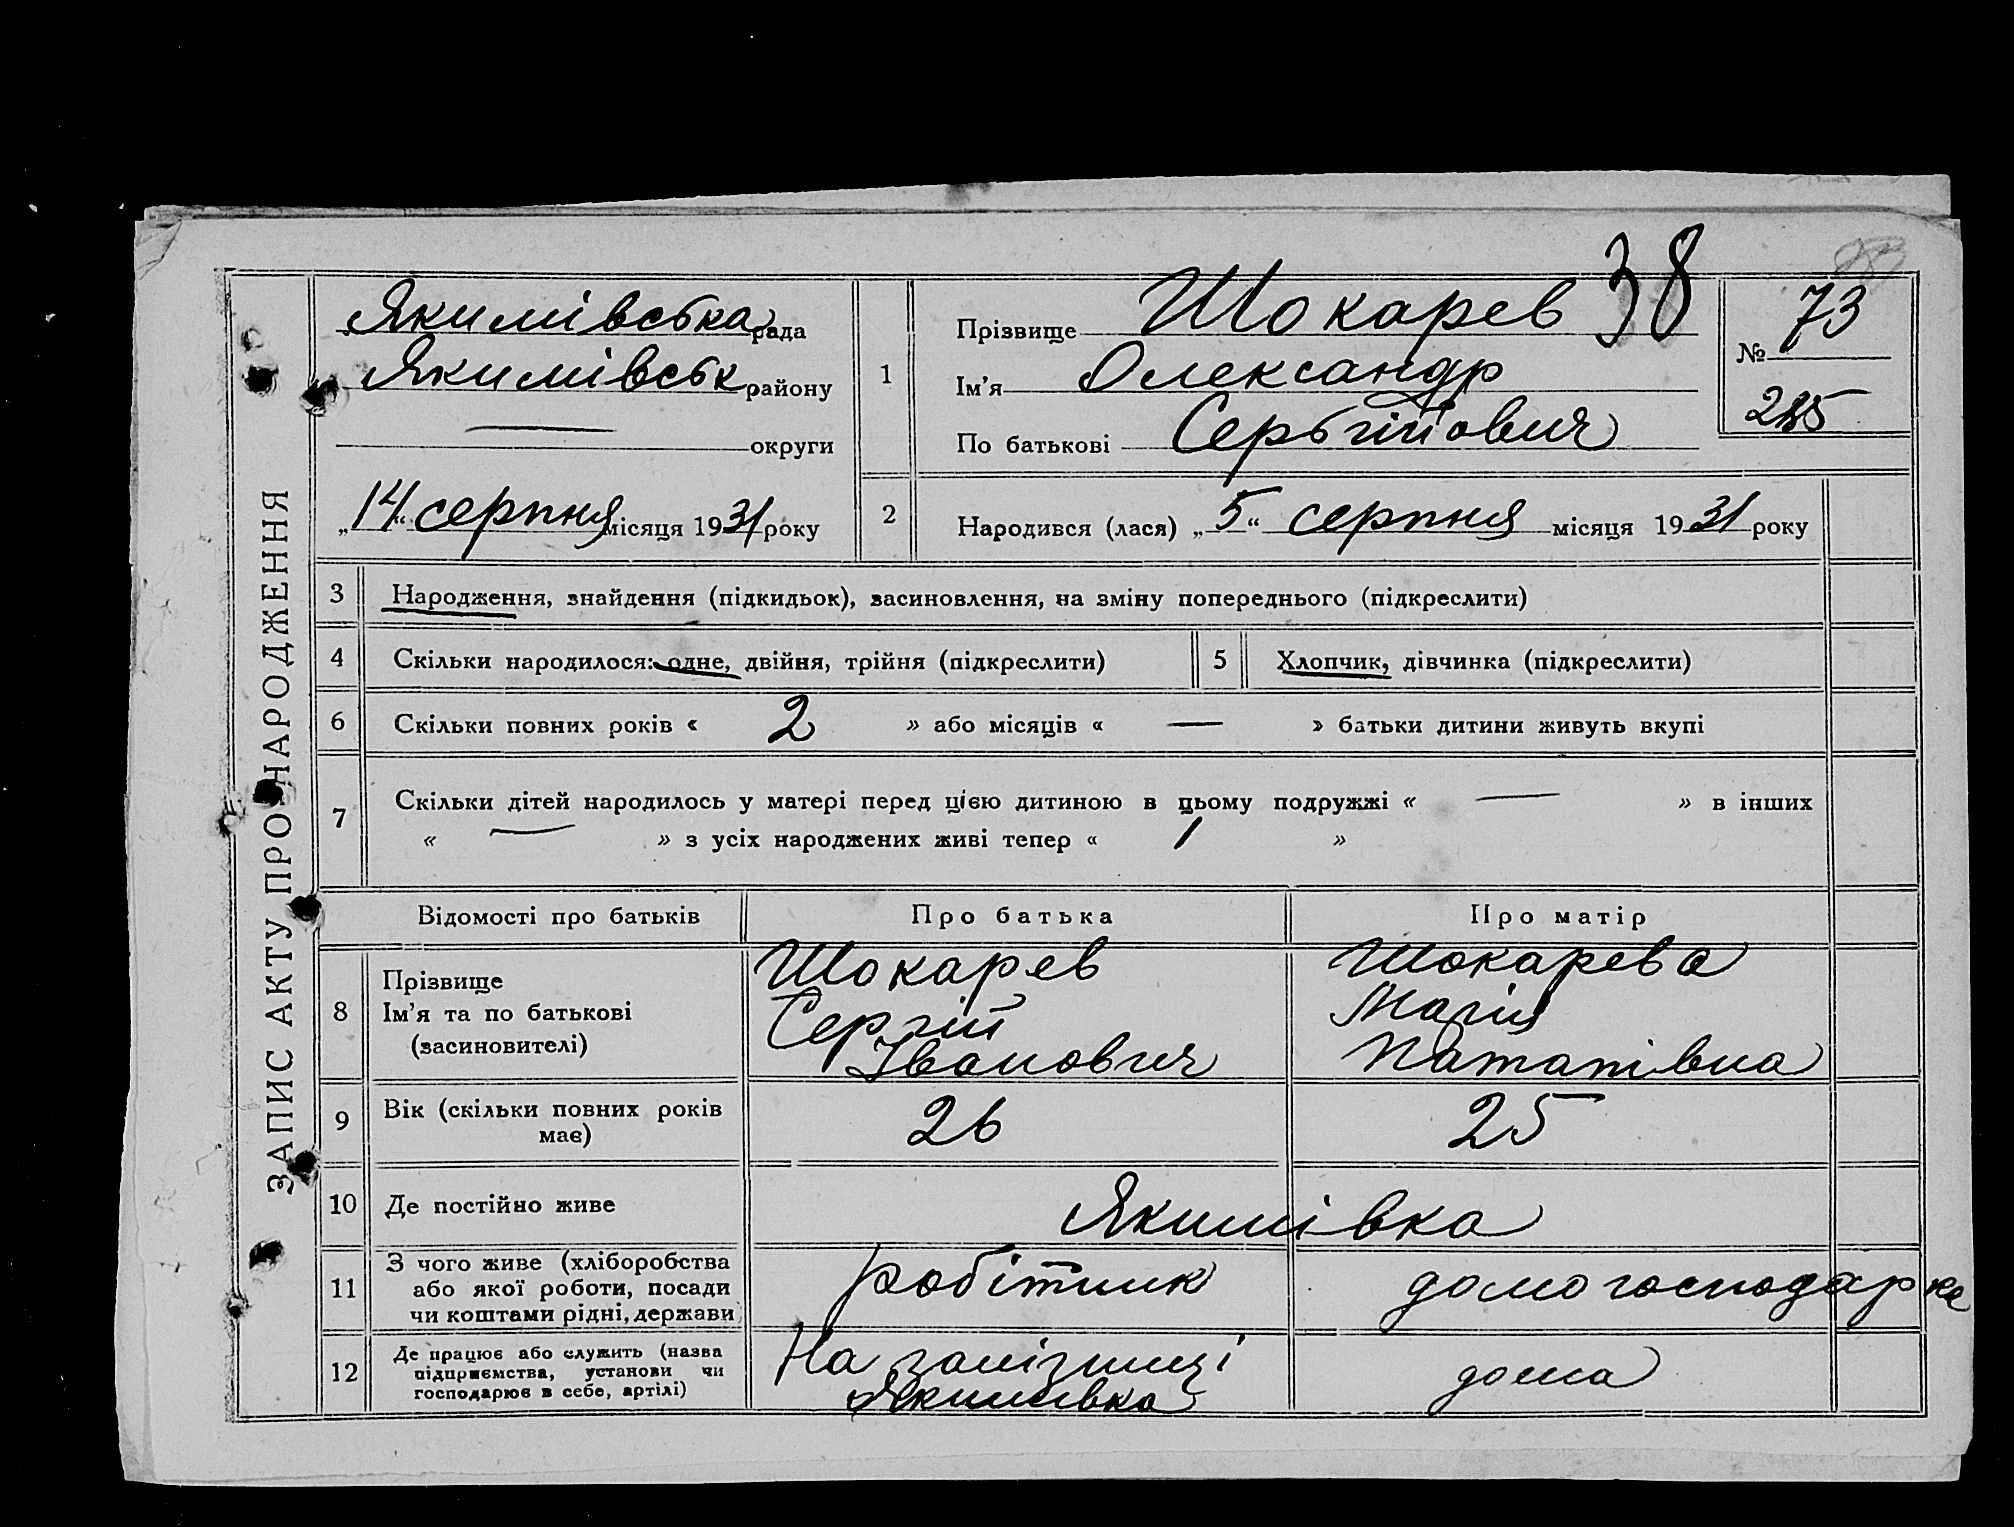 ЗАПИС АКТУ ПРО НАРОДЖЕННЯ
38
Якимівська рада
Якимівськ району
— округи
„14“ серпня місяця 1931 року
1
Прізвище Шокарев
Ім'я Олександр
По батькові Сергійович
№ 73
285
2
Народився (лася) „5“ серпня місяця 1931 року
3 Народження, знайдення (підкидьок), засиновлення, на зміну попереднього (підкреслити)
4 Скільки народилося: одне, двійня, трійня (підкреслити) 5 Хлопчик, дівчинка (підкреслити)
6 Скільки повних років « 2 » або місяців « — » батьки дитини живуть вкупі
7 Скільки дітей народилось у матері перед цією дитиною в цьому подружжі « — » в інших
« — » з усіх народжених живі тепер « 1 »
Відомості про батьків Про батька Про матір
8 Прізвище
Ім'я та по батькові
(засиновителі)
Шокарев
Сергій
Іванович
Шокарева
Марія
Патапівна
9 Вік (скільки повних років
має)
26 25
10 Де постійно живе Якимівка
11 З чого живе (хліборобства
або якої роботи, посади
чи коштами рідні, держави
робітник домогосподарка
12 Де працює або служить (назва
підприємства, установи чи
господарює в себе, артілі)
На залізниці
Якимівка
дома